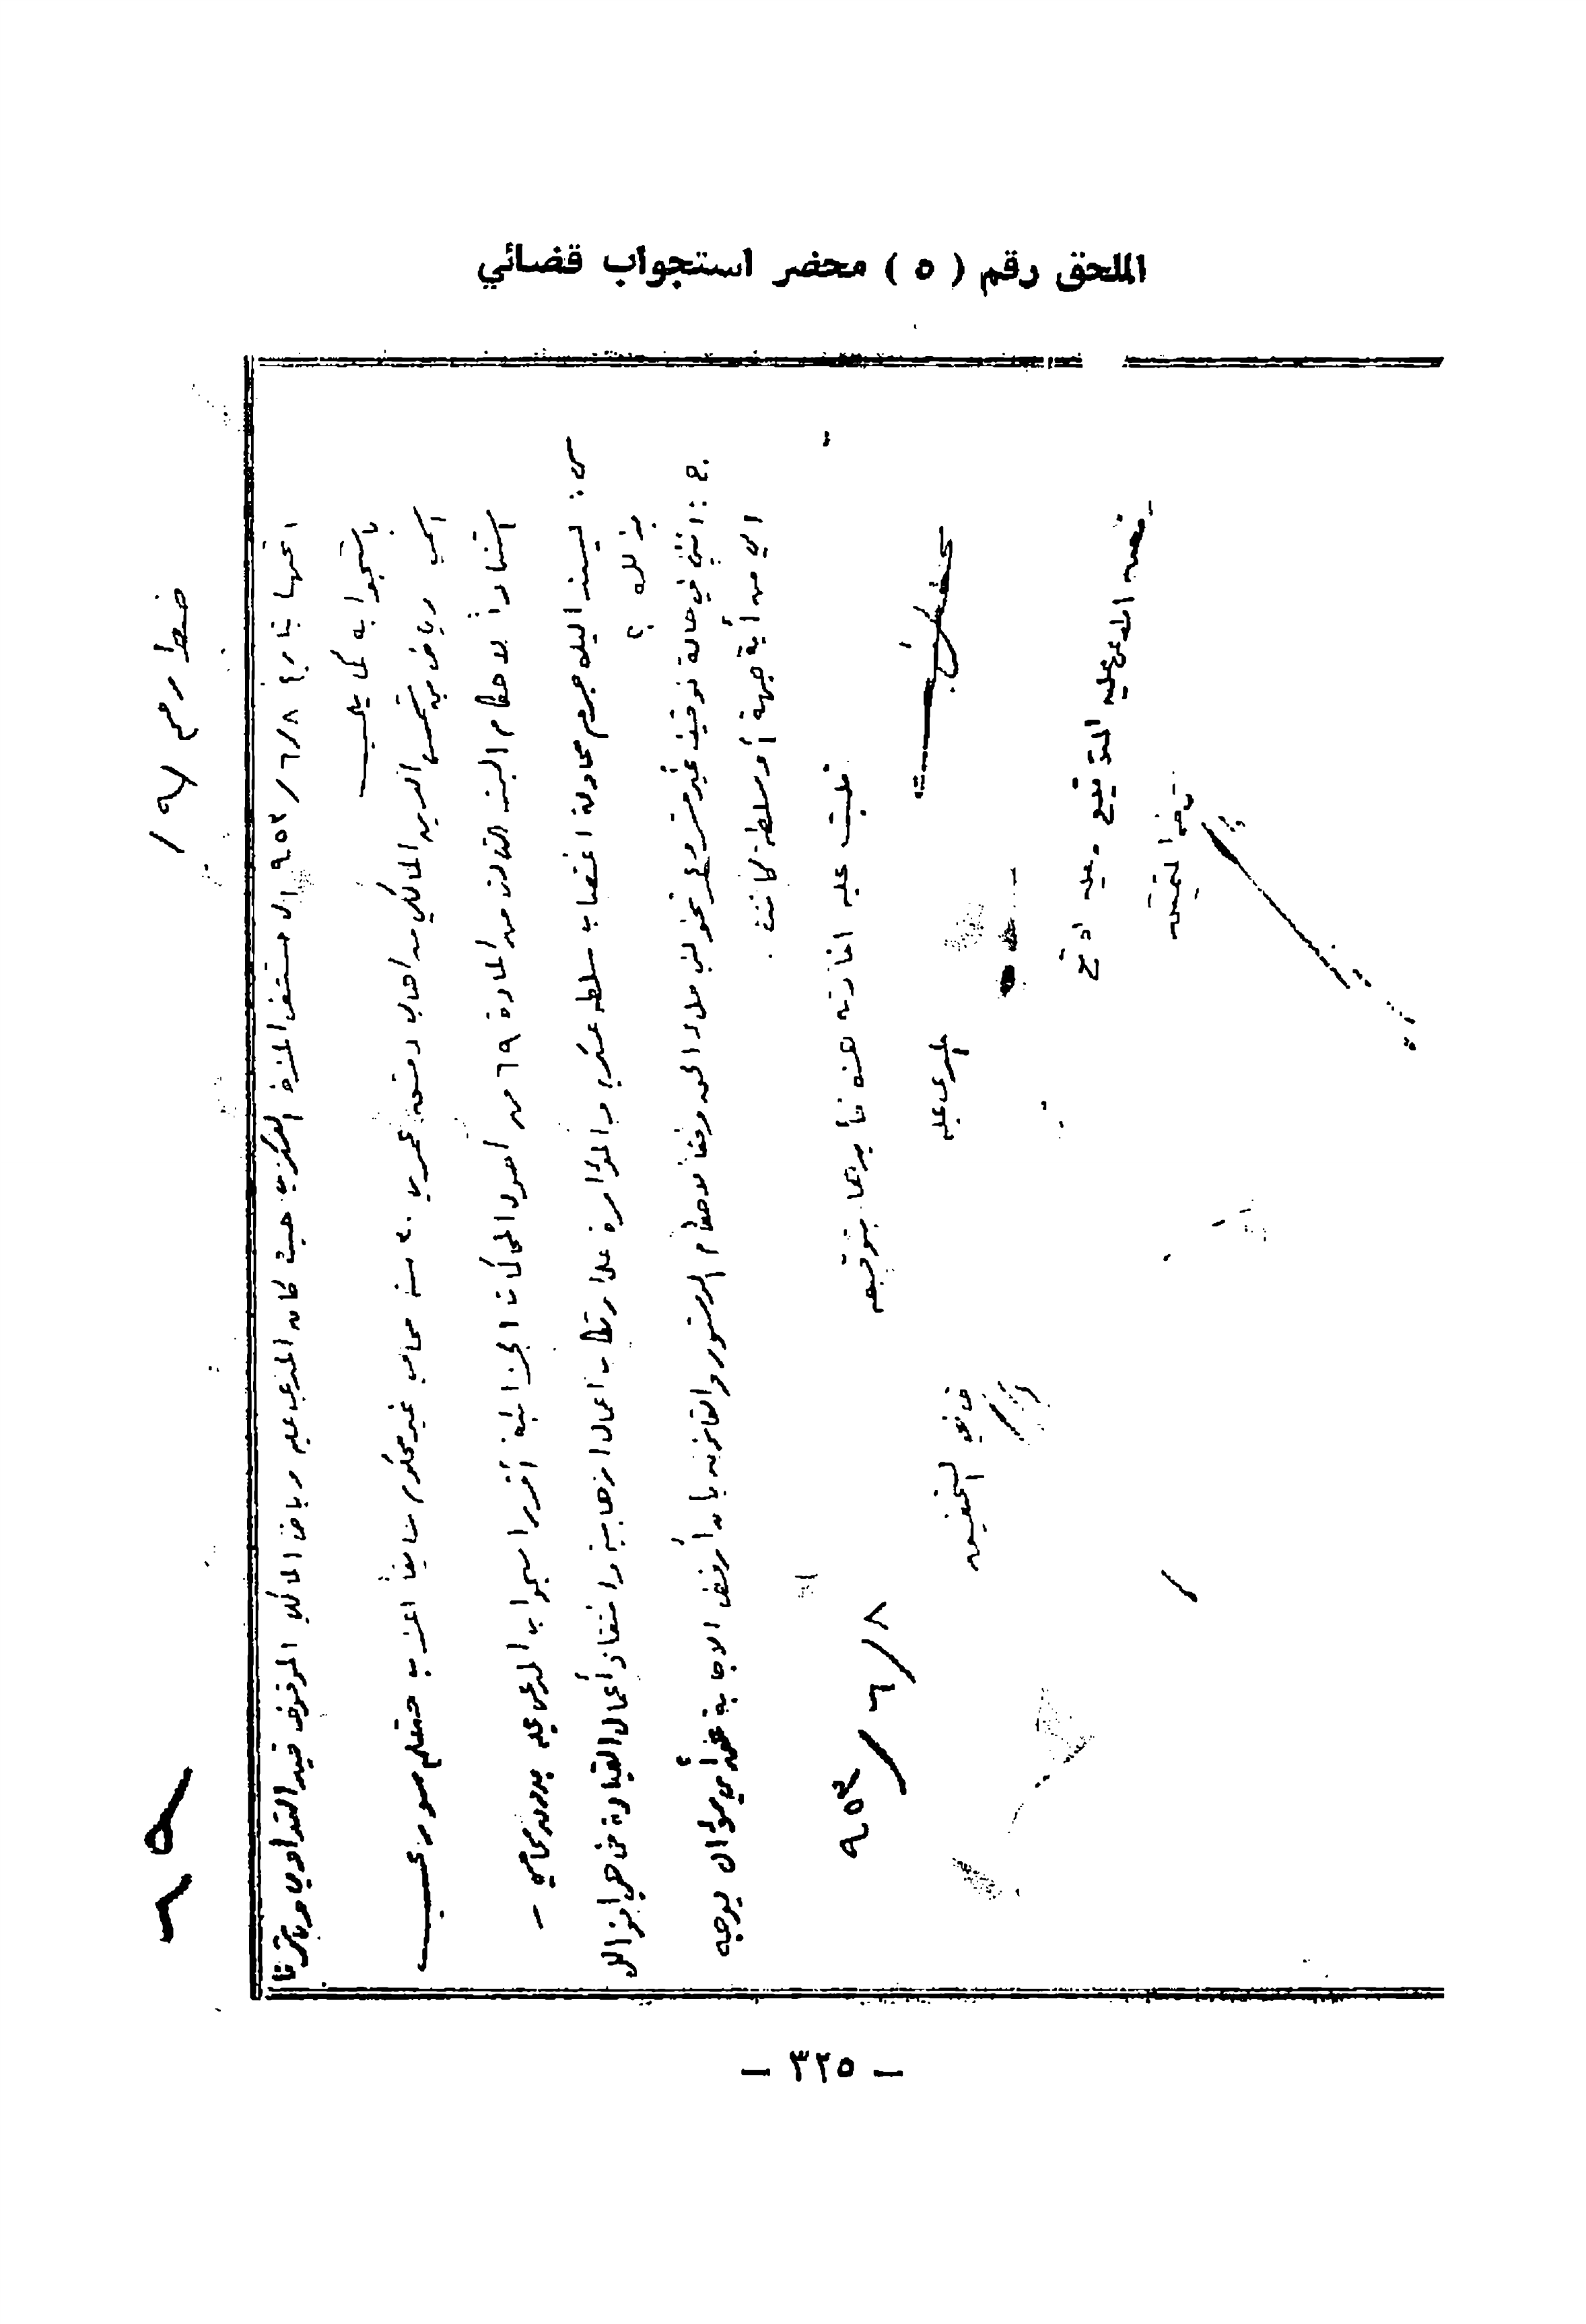 الملحق رقم ( ٥ ) محضر استجواب قضائي
٦٩
اتجهنا بتاريخ ٩٥٣/٦/٨ الى مستشفى المزة العسكري حيث كان المدعى عليه رياض المالكي الموقوف قيد التداوي وباشرنا
باستجوابه كما يلي
اسمي رياض بن شمس الدين المالكي من اهالي دمشق عمري ٣٠ سنة محامي غير محكوم سابقاً اعزب متعلم سوري
استناداً لاحكام البند الثالث من المادة ٦٩ من أصول المحاكمات الجزائية أقرر استجواب المدعى عليه بدون محامي -
س : يسند اليك جرم محاولة اغتصاب سلطة عسكرية والمؤامرة على ارتكاب اعمال ارهابية وانتقاد أعمال القيادة
بذلك ؟
ج : انني في حالة توقيف غير مشروع تخولني ملء الحق وفقاً لاحكام الدستور والقانون بأن أرفض الاجابة عن أي سؤال يوجه
الي من أية جهة أو سلطة كانت .
تليت عليه افادته هذه فأيدها بتوقيعه
٩٥٣/٦/٨
المدعى عليه
قاضي التحقيق
رفض المدعى عليه التوقيع وعليه اوقع
قاضي التحقيق
- ٣٢٥ -